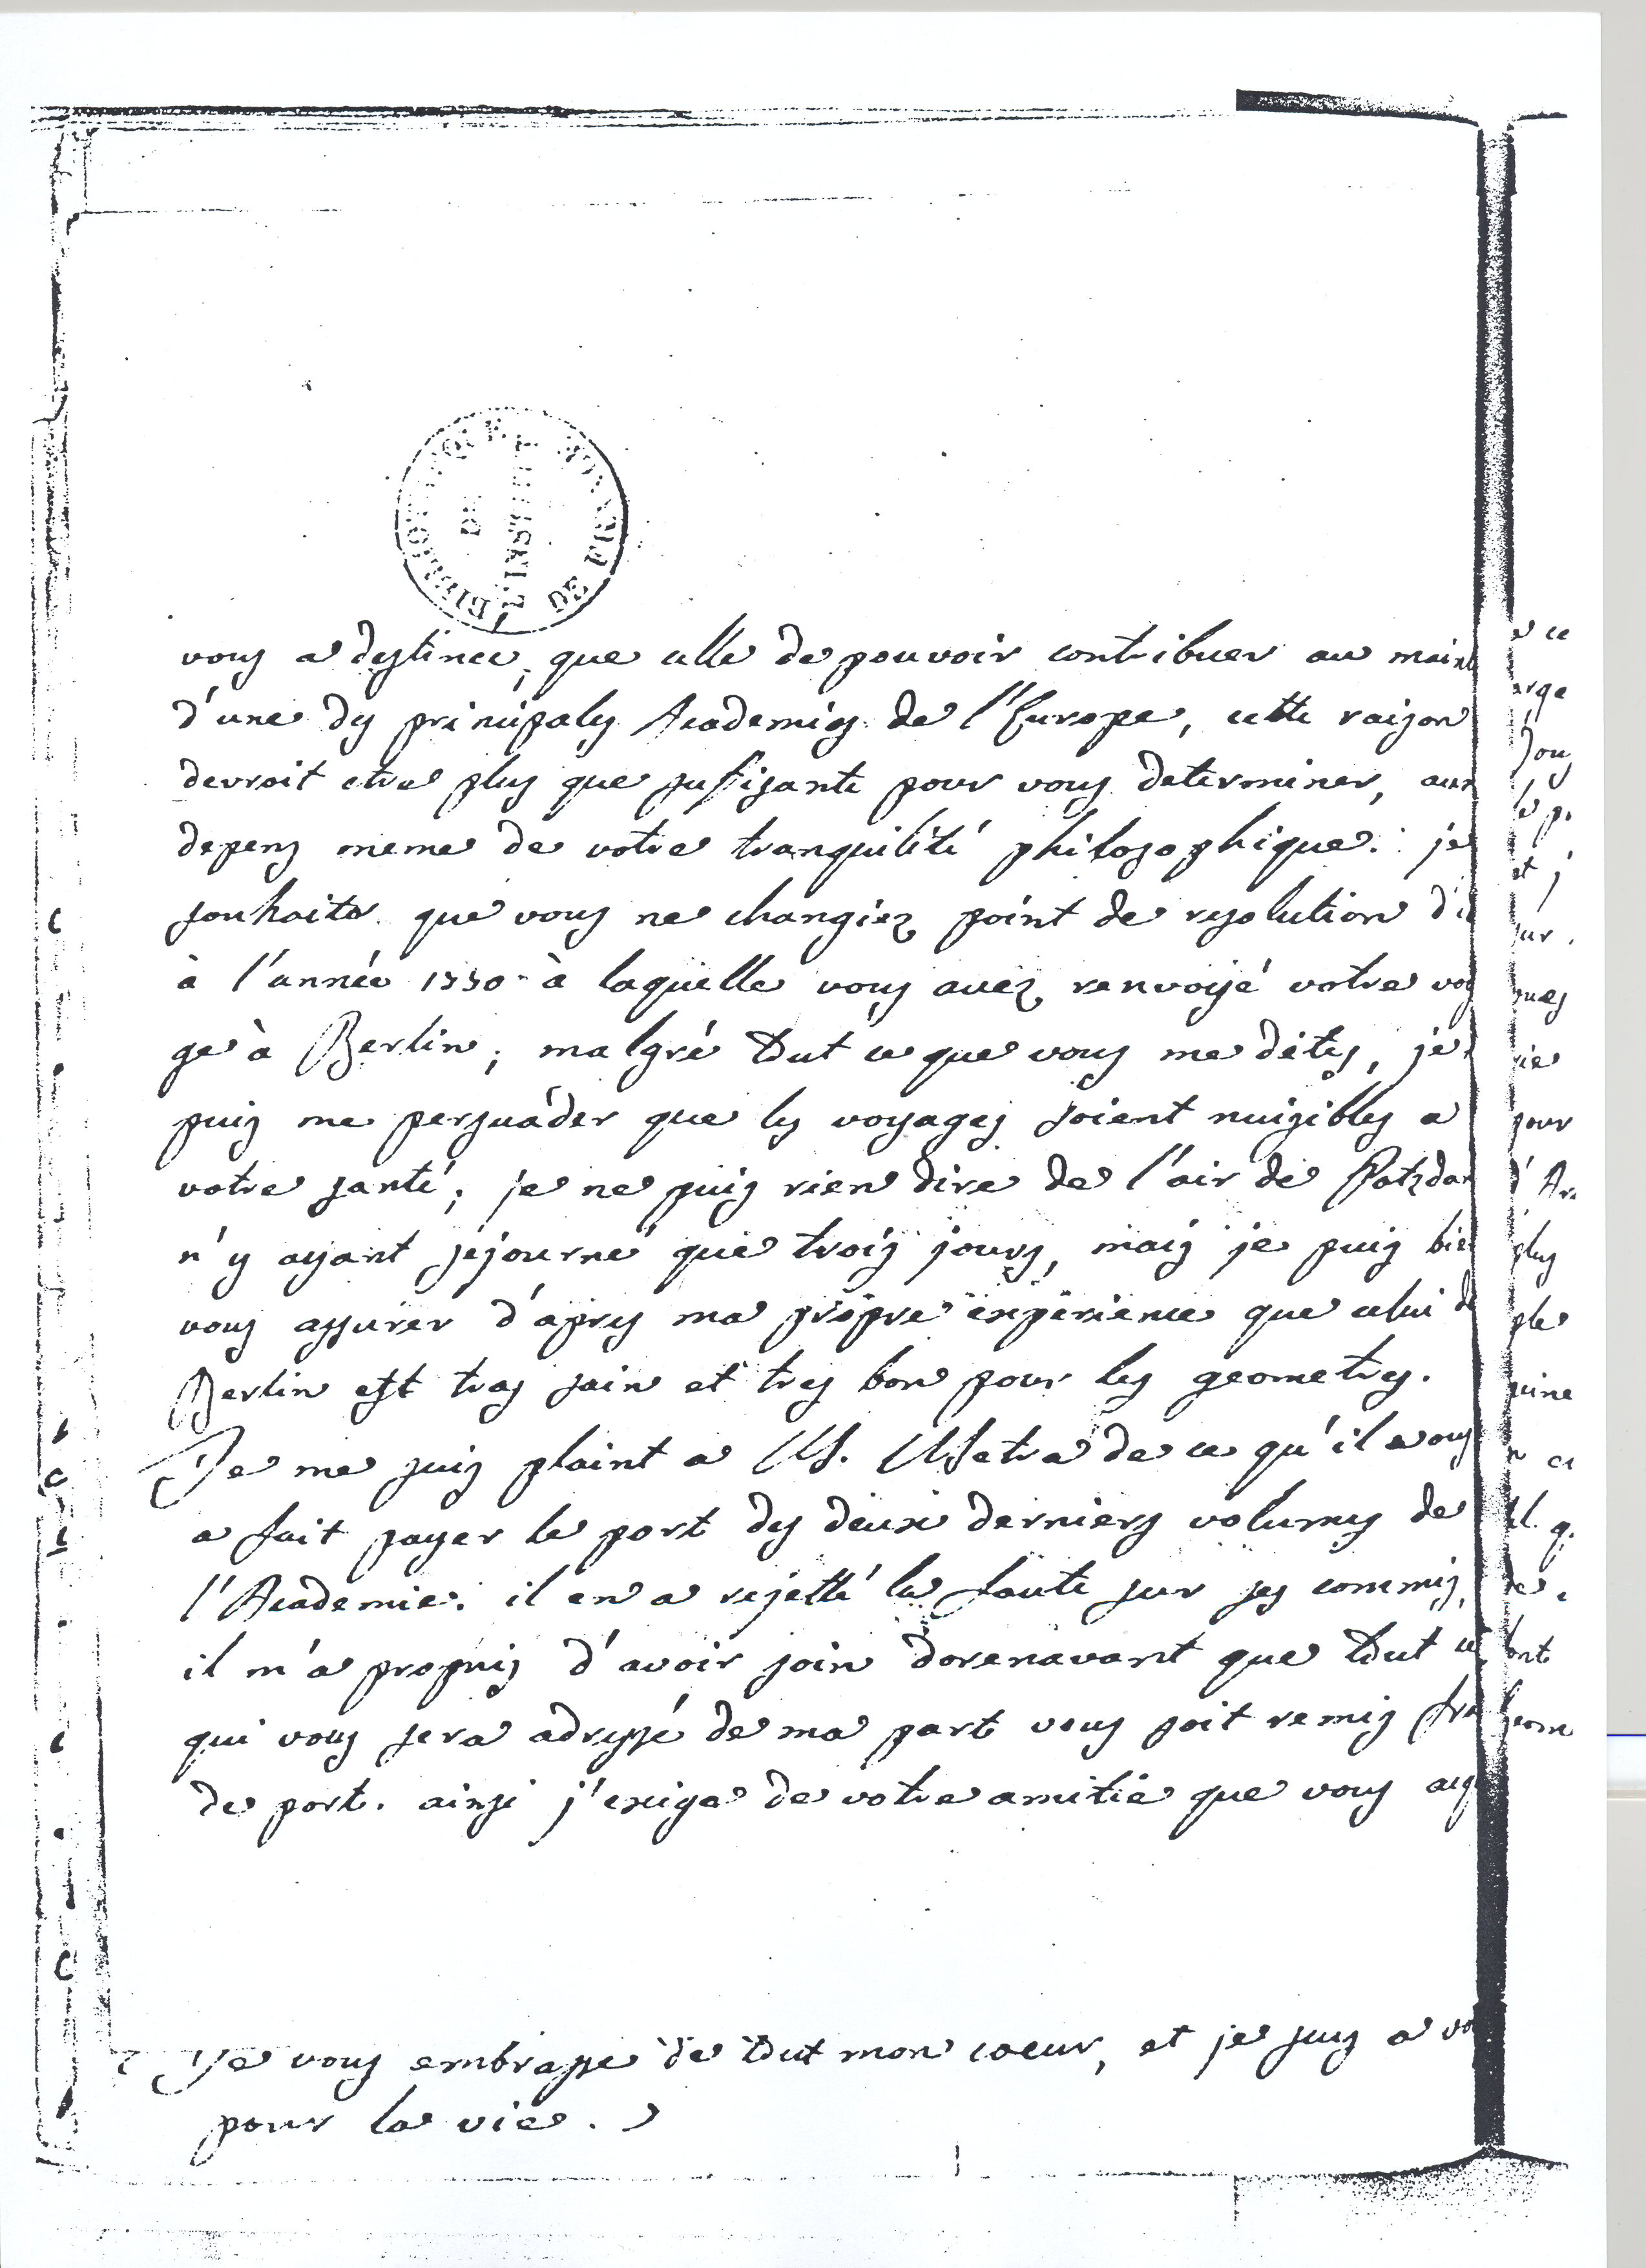 BIBLIOTHEQUE DE L'INSTITUT
vous a destinée, que celle de pouvoir contribuer au maint
d'une des principales Academies de l'Europe, cette raison
devroit etre plus que suffisante pour vous determiner, aux
depens meme de votre tranquilité philosophique. je
souhaite que vous ne changiez point de resolution d'i
à l'année 1770 à laquelle vous avez renvoyé votre voy
ge à Berlin; malgré tout ce que vous me dites, je
puis me persuader que les voyages soient nuisibles a
votre santé; je ne puis rien dire de l'air de Potzdam
n'y ayant sejourné que trois jours, mais je puis bien
vous assurer d'apres ma propre experience que celui de
Berlin est tres sain et tres bon pour les geometres.
Je me suis plaint a M. Metra de ce qu'il vous
a fait payer le port des deux derniers volumes de
l'Academie. il en a rejetté la faute sur ses commis,
il m'a promis d'avoir soin dorenavant que tout ce
qui vous sera adressé de ma part vous soit remis fra
de port. ainsi j'exige de votre amitié que vous ay
Je vous embrasse de tout mon coeur, et je suis a vo
pour la vie.